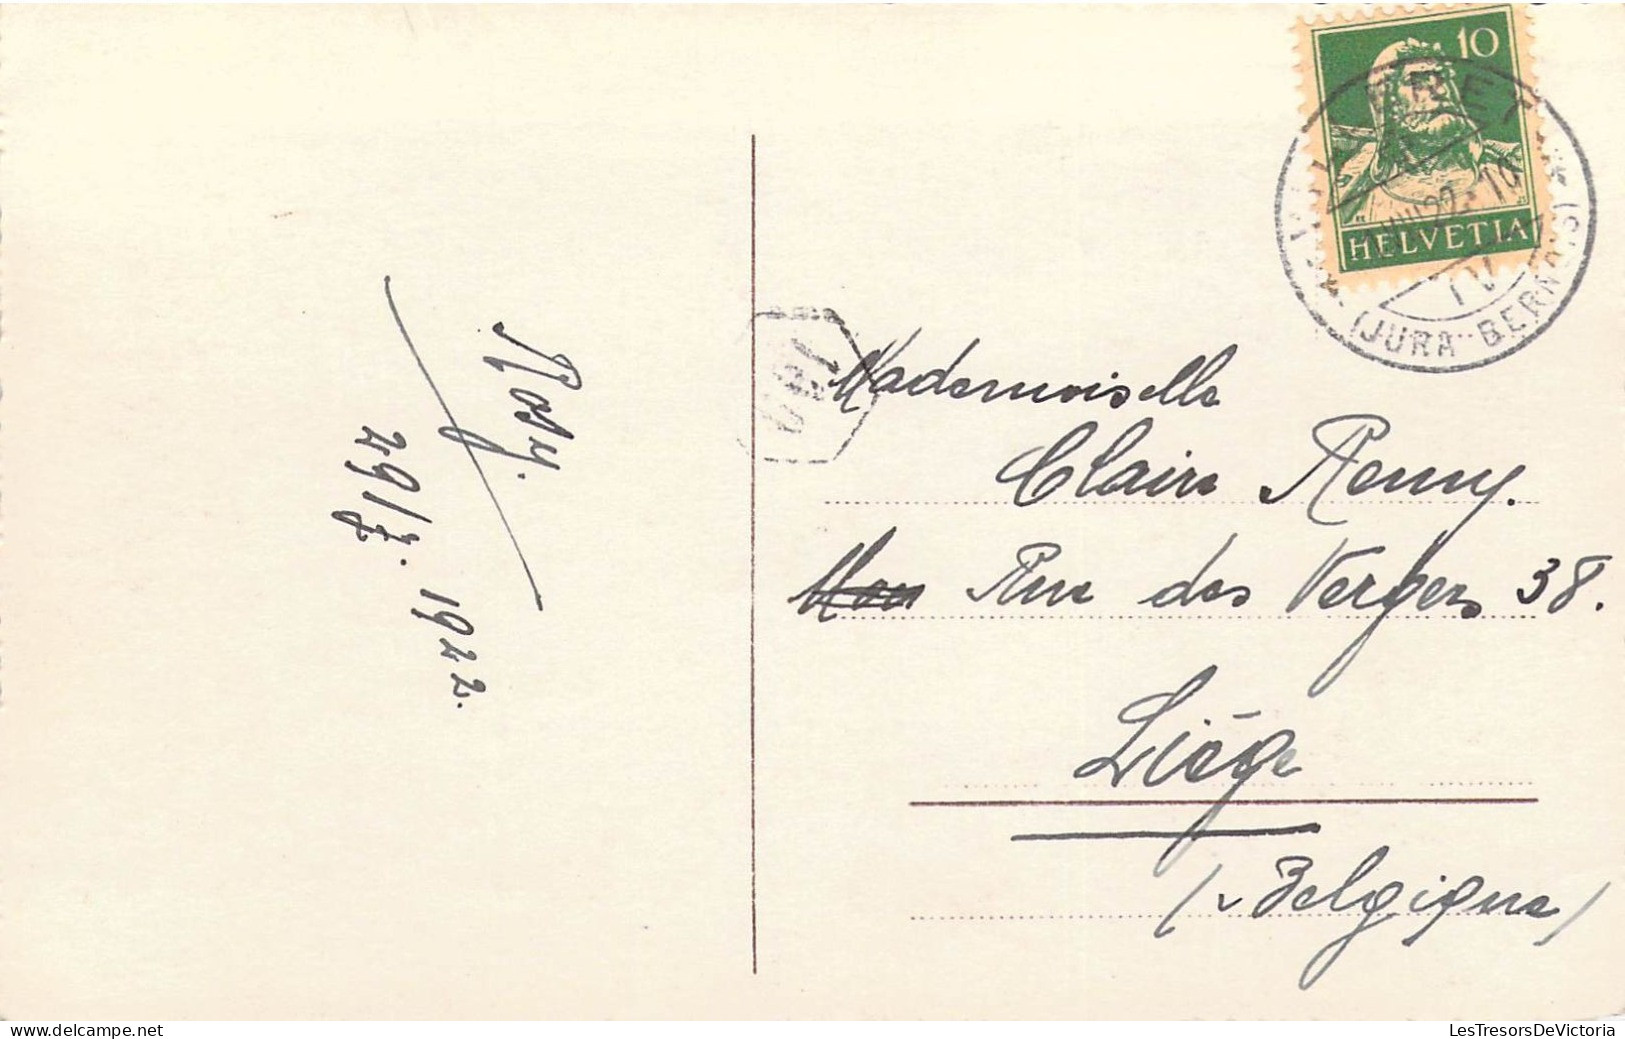 10
HELVETIA
(JURA-BERNOIS)
Rosy.
29/7. 1922.
Mademoiselle
Claire Remy.
Rue des Vergers 38.
Liége
(Belgique)
LesTresorsDeVictoria
delcampe.net